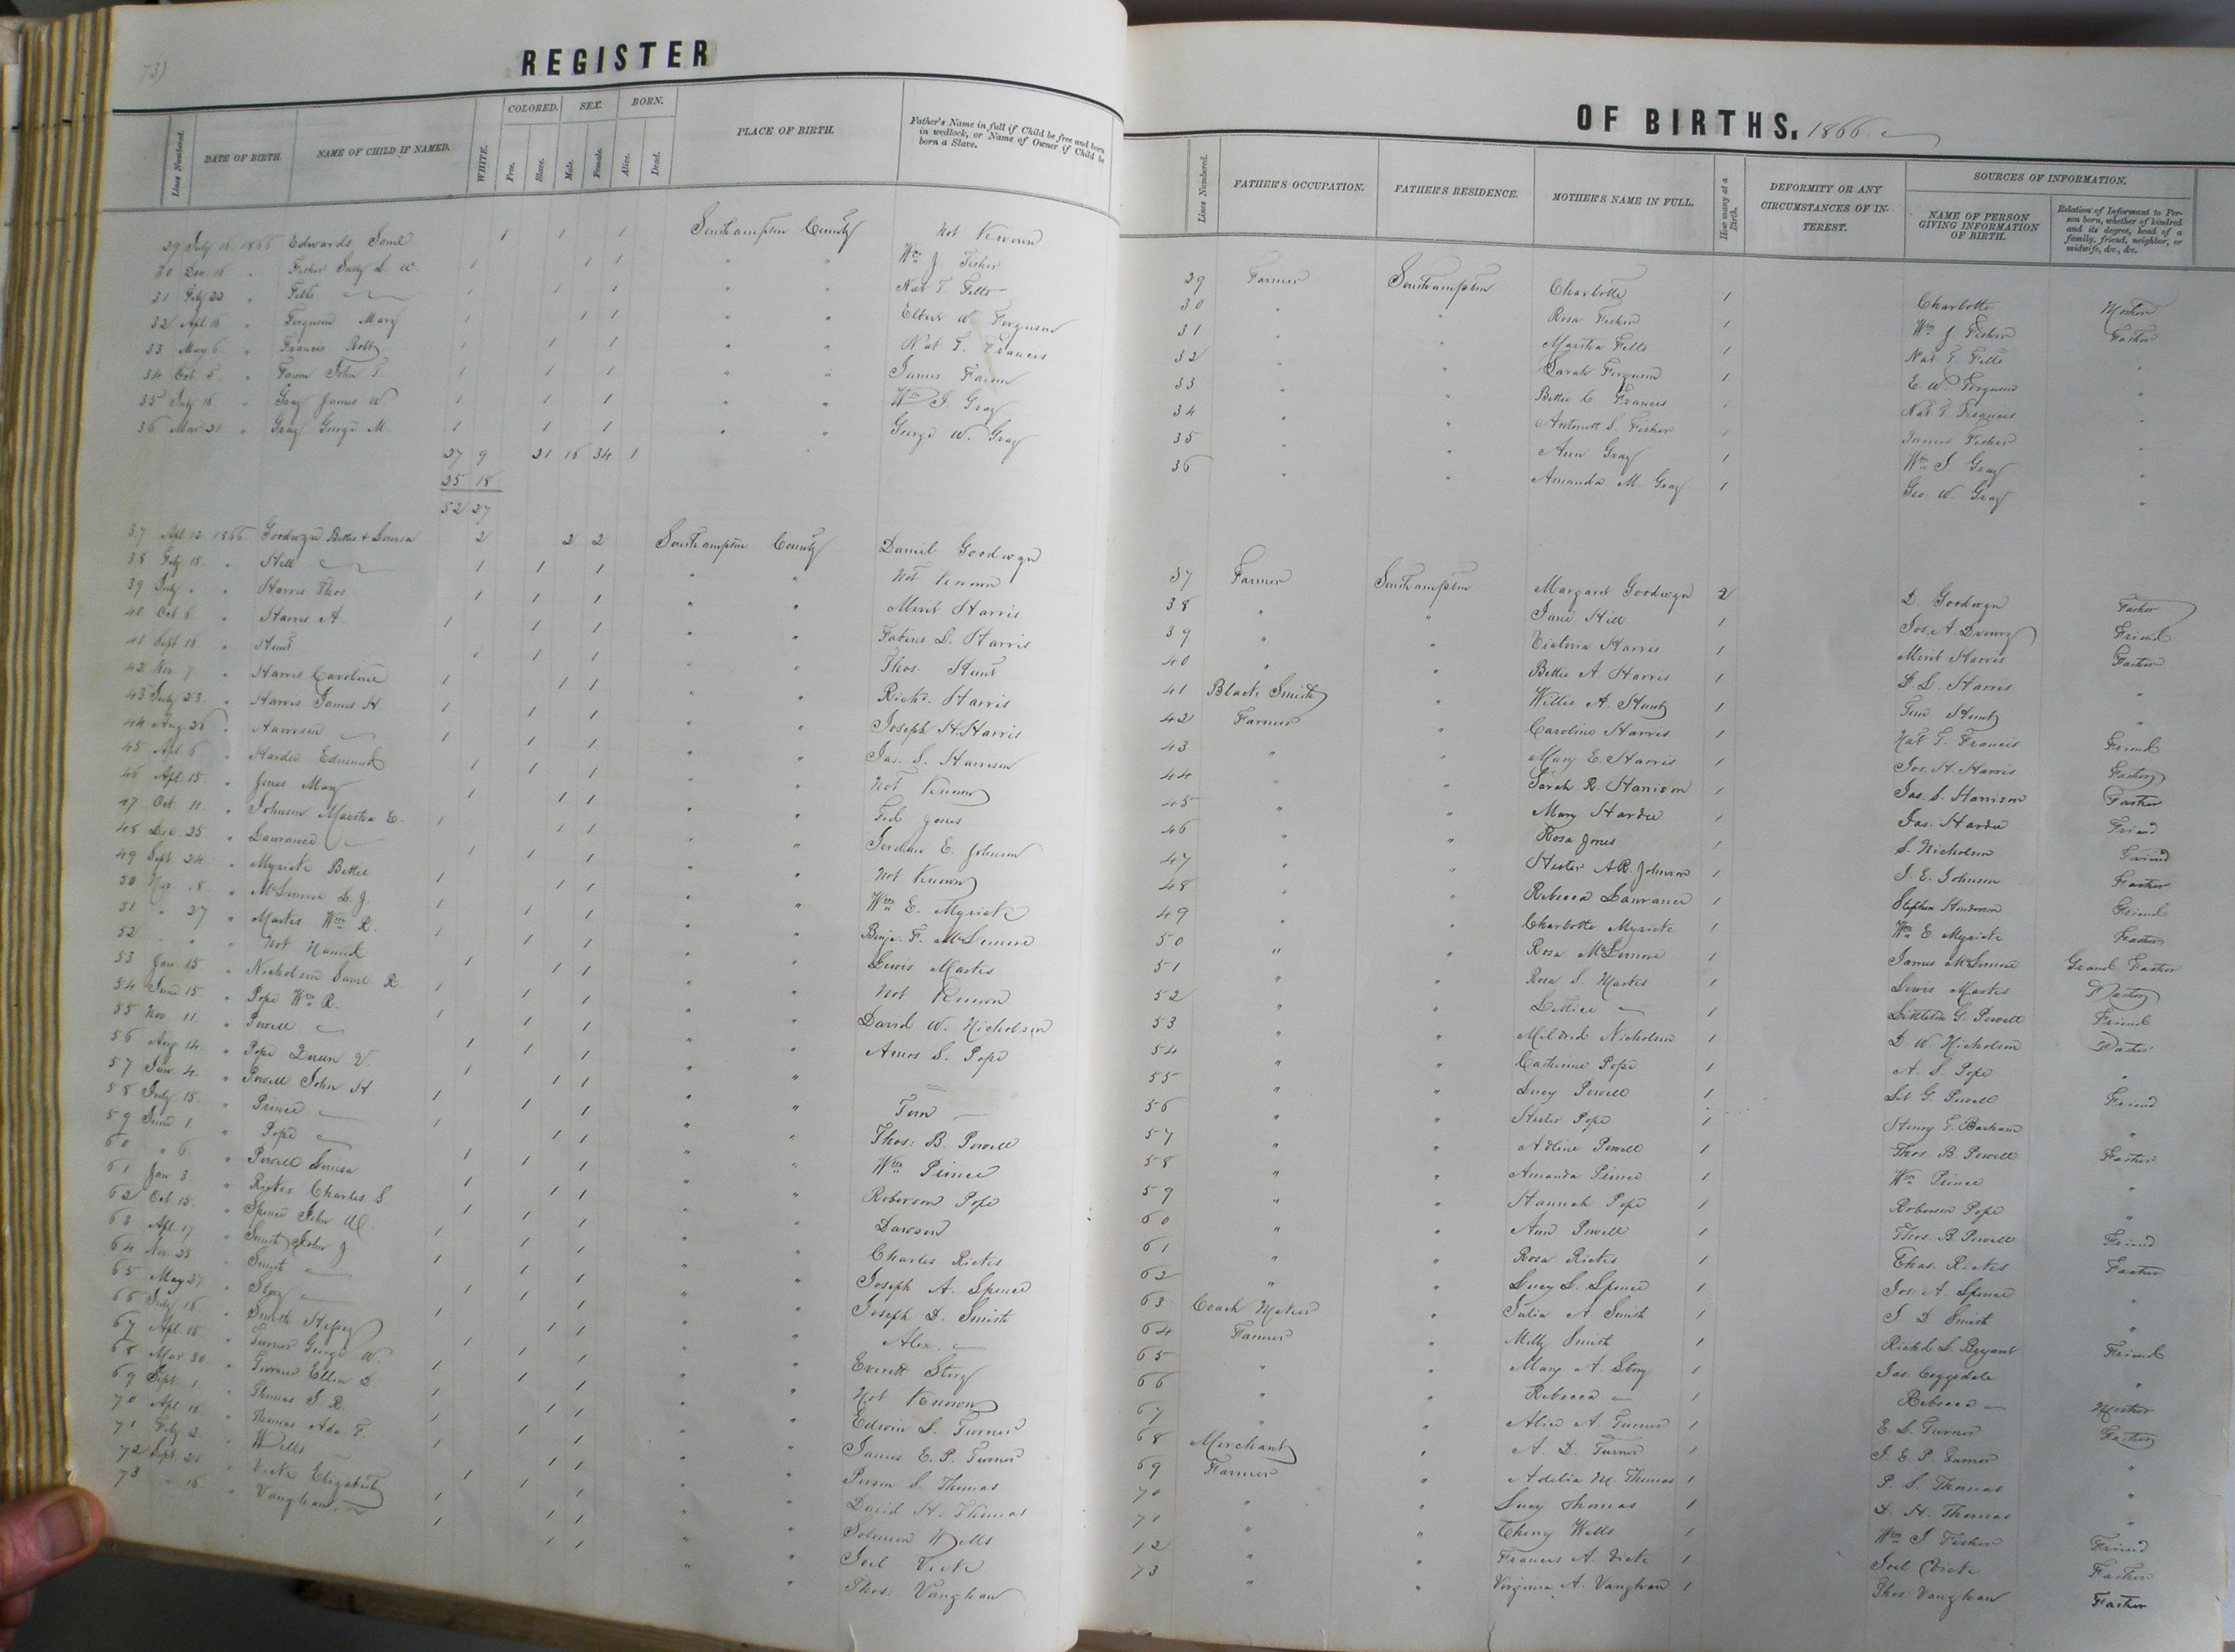 73)
REGISTER
Lines Numbered.
DATE OF BIRTH.
NAME OF CHILD IF NAMED.
WHITE.
COLORED.
Free.
Slave.
SEX.
Male.
Female.
BORN.
Alive.
Dead.
PLACE OF BIRTH.
Father's Name in full if Child be free and born
in wedlock, or Name of Owner if Child be
born a Slave.
29 July 16 1866 Edwards Saml 1 1 1 Southampton County Not Known
30 Dec. 16 " Fisher Sally L. W. 1 1 1 " " Wm J Fisher
31 Feby 22 " Felts 1 1 1 " " Nat T. Felts
32 Apl. 16 " Ferguson Mary 1 1 1 " " Elbert W. Ferguson
33 May 6 " Francis Robt 1 1 1 " " Nat T. Francis
34 Oct. 5 " John T. 1 1 1 " " James
35 July 16 " Gray James W 1 1 1 " " Wm J. Gray
36 Mar 21 " Gray George M. 1 1 1 " " George W. Gray
27 9 21 15 34 1
25 18
52 27
37 Apl. 12 1866 Goodwyn Bettie & Louisa 2 2 2 Southampton County Daniel Goodwyn
38 Feby 15 " Hill 1 1 1 " " Not Known
39 July " " Harris Thos 1 1 1 " " Merit Harris
40 Oct 6 " Harris A. 1 1 1 " " D. Harris
41 Sept 16 " Hunt 1 1 1 " " Thos. Hunt
42 Nov 7 " Harris Caroline 1 1 1 " " Richd. Harris
43 July 23 " Harris James H 1 1 1 " " Joseph H. Harris
44 Aug 26 " Harrison 1 1 1 " " Jas. S. Harrison
45 Apl 6 " Hardee Edmund 1 1 1 " " Not Known
46 Apl. 15 " Jones Mary 1 1 1 " " Fed Jones
47 Oct. 11 " Johnson Martha E. 1 1 1 " " Jordan E. Johnson
48 Dec 25 " Lawrance 1 1 1 " " Not Known
49 Sept. 24 " Myrick Bettie 1 1 1 " " Wm E. Myrick
50 Nov. 8 " McLemore L. J. 1 1 1 " " Benj. F. McLemore
51 " 27 " Marks Wm R. 1 1 1 " " Lewis Marks
52 " " Not Named 1 1 1 " " Not Known
53 Jan 15 " Nicholson Saml R. 1 1 1 " " David W. Nicholson
54 June 15 " Pope Wm R. 1 1 1 " " Amos S. Pope
55 Nov 11 " Powell 1 1 1 " "
56 Aug 14 " Pope Queen V. 1 1 1 " " Tom
57 Jan. 4 " Powell John H 1 1 1 " " Thos. B. Powell
58 July 15 " Prince 1 1 1 " " Wm Prince
59 June 1 " Pope 1 1 1 " " Roberson Pope
60 " 6 " Powell Louisa 1 1 1 " " Dawson
61 Jan 3 " Ricks Charles S 1 1 1 " " Charles Ricks
62 Oct 15 " Spence John W. 1 1 1 " " Joseph A. Spence
63 Apl. 17 " Smith John J 1 1 1 " " Joseph D. Smith
64 Nov 25 " Smith 1 1 1 " " Alex.
65 May 27 " Story 1 1 1 " " Everett Story
66 July 16 " Smith 1 1 1 " " Not Known
67 Apl. 15 " Turner George W. 1 1 1 " " Edwin L. Turner
68 Mar. 30 " Turner Ellen D 1 1 1 " " James E. P. Turner
69 Sept. 1 " Thomas J. R. 1 1 1 " " S. Thomas
70 Apl 18 " Thomas Ada F. 1 1 1 " " David H. Thomas
71 Feby 2 " Wells 1 1 1 " " Solomon Wells
72 Sept 20 " Vick Elizabeth 1 1 1 " " Joel Vick
73 " 16 " Vaughan 1 1 1 " " Thos. Vaughan
OF BIRTHS, 1866
Lines Numbered.
FATHER'S OCCUPATION.
FATHER'S RESIDENCE.
MOTHER'S NAME IN FULL.
How many at a
Birth.
DEFORMITY OR ANY
CIRCUMSTANCES OF IN-
TEREST.
SOURCES OF INFORMATION.
NAME OF PERSON
GIVING INFORMATION
OF BIRTH.
Relation of Informant to Per-
son born, whether of kindred
and its degree, head of a
family, friend, neighbor, or
midwife, &c., &c.
29 Farmer Southampton Charlotte 1 Charlotte Mother
30 " " Rosa Fisher 1 Wm J Fisher Father
31 " " Martha Felts 1 Nat T Felts "
32 " " Sarah Ferguson 1 E. W. Ferguson "
33 " " Bettie C. Francis 1 Nat T. Francis "
34 " " S. Fisher 1 James Fisher "
35 " " Ann Gray 1 Wm J. Gray "
36 " " Amanda M. Gray 1 Geo W. Gray "
37 Farmer Southampton Margaret Goodwyn 2 D. Goodwyn Father
38 " " Jane Hill 1 Jos. A. Drewry Friend
39 " " Victoria Harris 1 Merit Harris Father
40 " " Bettie A. Harris 1 D. Harris "
41 Black Smith " Willie A. Hunt 1 Hunt "
42 Farmer " Caroline Harris 1 Nat T. Francis Friend
43 " " Mary E. Harris 1 Jos. H. Harris Father
44 " " Sarah R. Harrison 1 Jas. S. Harrison Father
45 " " Mary Hardee 1 Jas. Hardee Friend
46 " " Rosa Jones 1 S. Nicholson Friend
47 " " Hester A.R. Johnson 1 J. E. Johnson Father
48 " " Rebecca Lawrance 1 Stephen Henderson Friend
49 " " Charlotte Myrick 1 Wm E Myrick Father
50 " " Rosa McLemore 1 James McLemore Grand Father
51 " " Rosa S. Marks 1 Lewis Marks Father
52 " " Lettice 1 Littleton G. Powell Friend
53 " " Mildred Nicholson 1 D. W. Nicholson Father
54 " " Catherine Pope 1 A. S. Pope "
55 " " Lucy Powell 1 Lit G. Powell Friend
56 " " Hester Pope 1 Henry T. Barham "
57 " " Adline Powell 1 Thos. B. Powell Father
58 " " Amanda Prince 1 Wm Prince "
59 " " Hannah Pope 1 Roberson Pope "
60 " " Ann Powell 1 Thos. B. Powell Friend
61 " " Rosa Ricks 1 Chas. Ricks Father
62 " " Lucy L. Spence 1 Jos A. Spence "
63 Coach Maker " Julia A. Smith 1 J D Smith "
64 Farmer " Milly Smith 1 Richd. L. Bryant Friend
65 " " Mary A. Story 1 Jas. "
66 " " Rebecca 1 Rebecca Mother
67 " " Alice A. Turner 1 E. L. Turner Father
68 Merchant " A. D. Turner 1 J. E. P. Turner "
69 Farmer " Adelia M. Thomas 1 P. S. Thomas "
70 " " Lucy Thomas 1 D. H. Thomas "
71 " " Cherry Wells 1 Wm J. Fisher Friend
72 " " Frances A. Vick 1 Joel Vick Father
73 " " Virginia A. Vaughan 1 Thos Vaughan Father